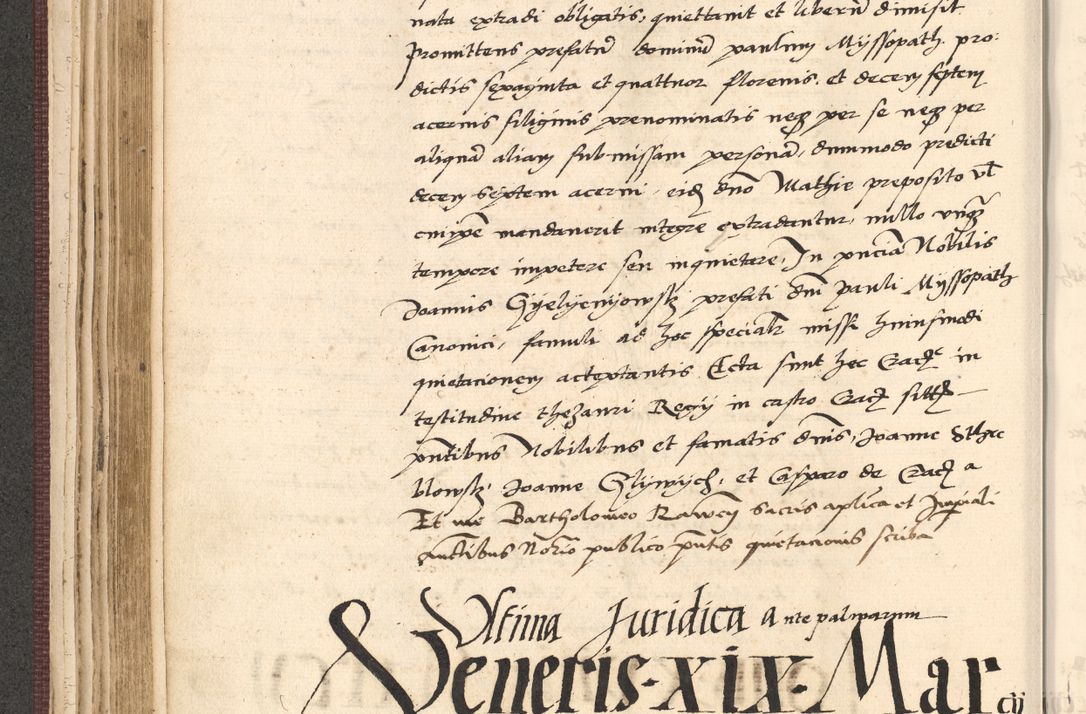 nata extradi obligatis, quiettavit et liberum dimisit
Promittens prefatum dominum paulum Myssopath. pro:
dictis sexaginta et quattuor florenis, et decem septem
acervis siliginis prenominatis neque per se neque per
aliquam aliam submissam personam, dummodo predicti
decem septem acervi, eidem domino Mathie preposito vel
cui ipse mandaverit integre extradantur, nullo unquam
tempore impetere seu inquietare, In presencia Nobilis
Joannis Gyelyenyowsky prefati domini pauli Myssopath
Canonici, famuli ad hoc specialiter missi huiusmodi
quietacionem acceptantis Acta sunt hec Cracovie in
testitudine thezauri Regij in castro Crac sitti
presentibus Nobilibus et famatis dominis, Joanne Sthre
blowsky, Joanne Glywych, et Casparo de Crac a
Et me Bartholomeo Rawen sacris aplica et Imperiali
auctibus Notario publico presentis quietacionis scriba
Ultima Juridica Ante palmarum
Veneris · xix · Marcij